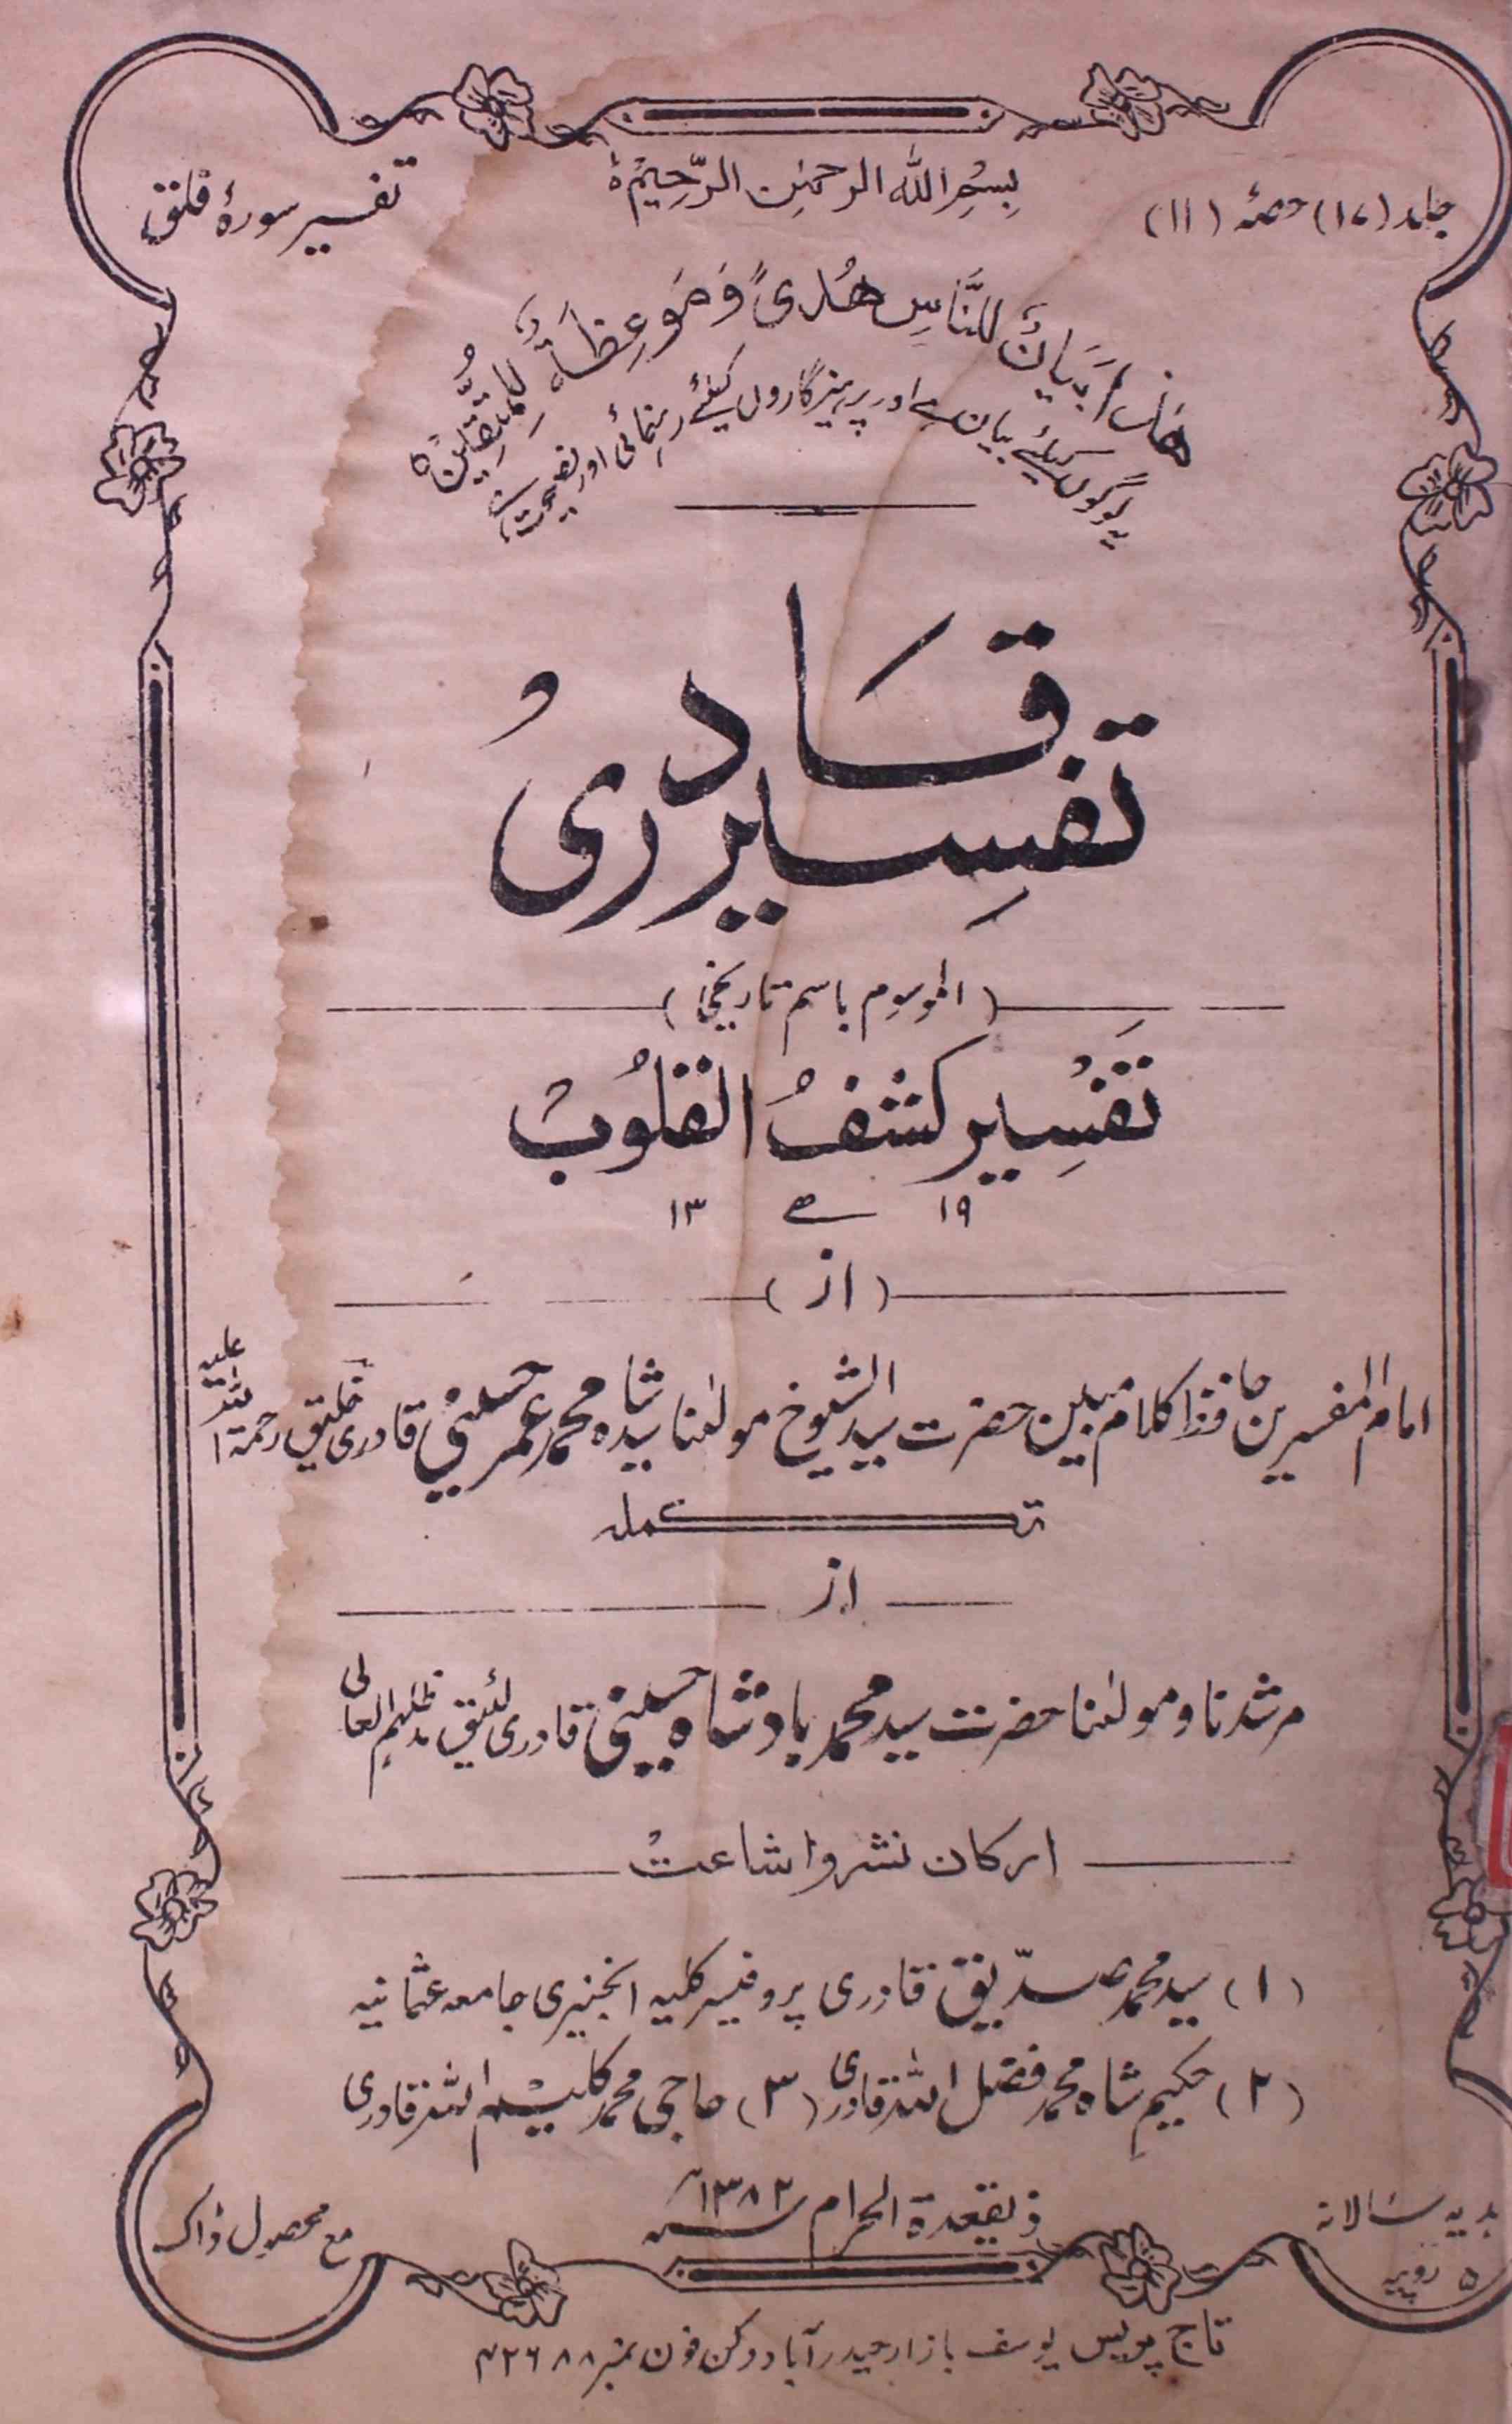 بِسْمِ اللہ الرحمٰن الرَّحِیْمِ ہ
جلد (۱۷) حصہ (۱۱)
تفسیر سورۂ فلق
ھٰذَا بَیَانٌ لِّلنَّاسِ ھُدیً وَّمَوعِظَۃٌ لِّلْمُتَّقِیْنَ ہ
یہ لوگوں کیلئے بیان ہے اور پرہیزگاروں کیلئے رہنمائی اور نصیحت ہے
تفسیر قادری
(الموسوم باسم تاریخی)
تفسیر کشف القلوب
۱۹ ھ ۱۳
(از)
امام المفسرین حافظ کلام مبین حضرت سید الشیوخ مولٰنا سید شاہ محمد عمر حسینی قادری خلیق رحمۃ اللہ علیہ
تکملہ
از
مرشدنا و مولٰنا حضرت سید محمد بادشاہ حسینی قادری لئیق مدظلہم العالی
ارکان نشر و اشاعت
(۱) سید محمد صدّیق قادری پروفیسر کلیہ انجنیری جامعہ عثمانیہ
(۲) حکیم شاہ محمد فضل اللہ قادری (۳) حاجی محمد کلیم اللہ قادری
ذیقعدۃ الحرام ۱۳۸۲ھ
ہدیہ سالانہ
۵ روپیہ
مع محصول ڈاک
تاج پریس یوسف بازار حیدرآباد دکن فون نمبر ۴۲۶۸۸